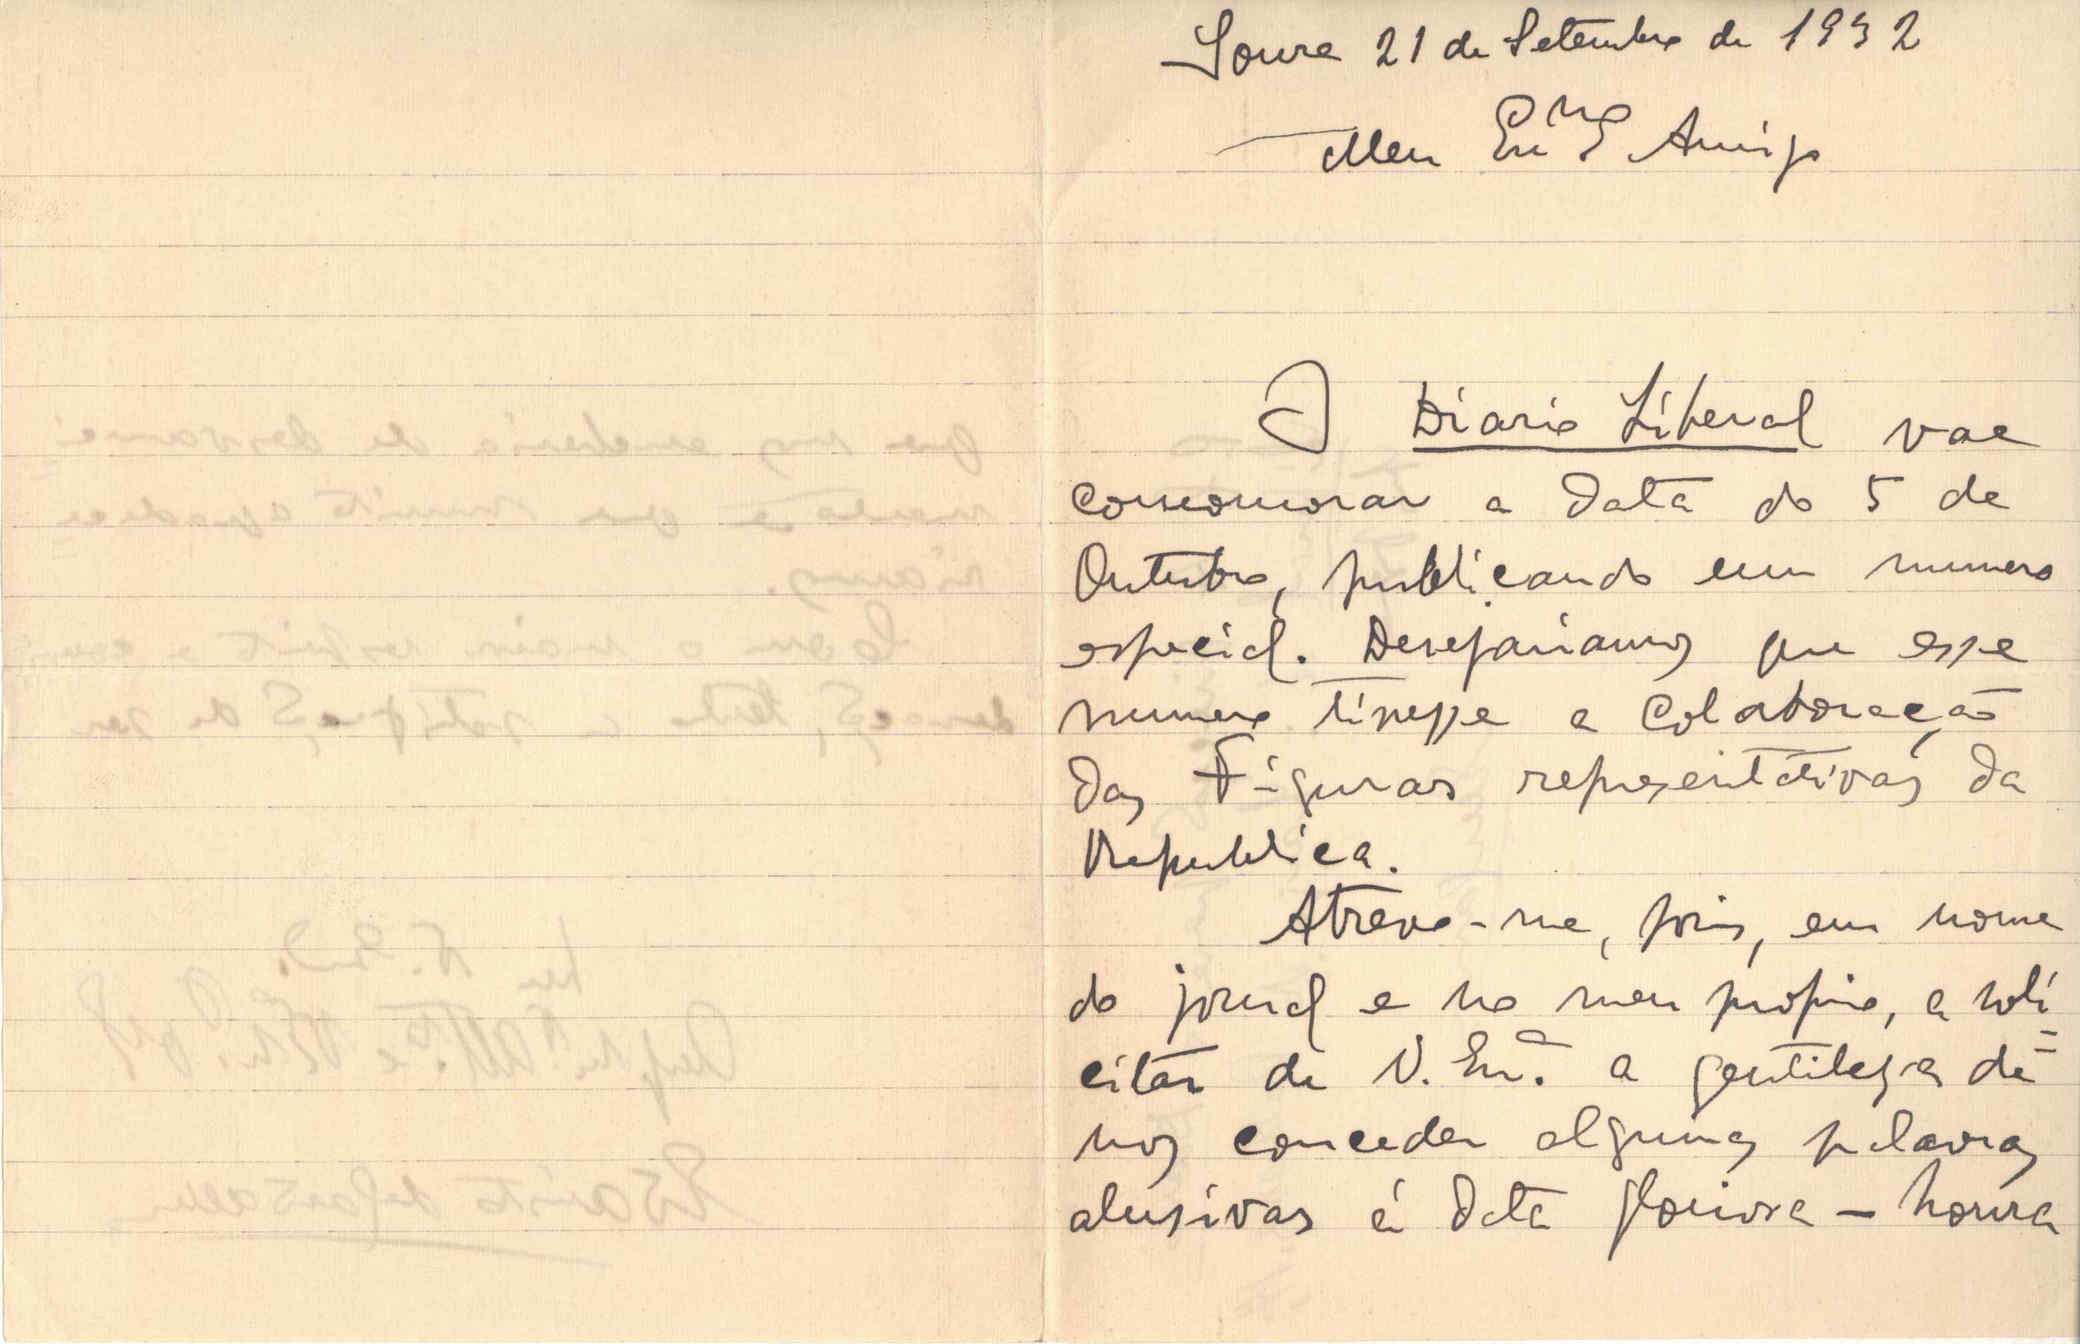 Soure 21 de Setembro de 1932
Meu Exmo Amigo
O Diario Liberal vae
comemorar a data do 5 de
Outubro, publicando um numero
especial. Desejariamos que esse
numero tivesse a colaboração
das Figuras representativas da
Republica.
Atrevo-me, pois, em nome
do jornal e no meu proprio, a soli=
citar de V. Exª. a gentileza de
nos conceder algumas palavras
alusivas á data gloriosa – honra